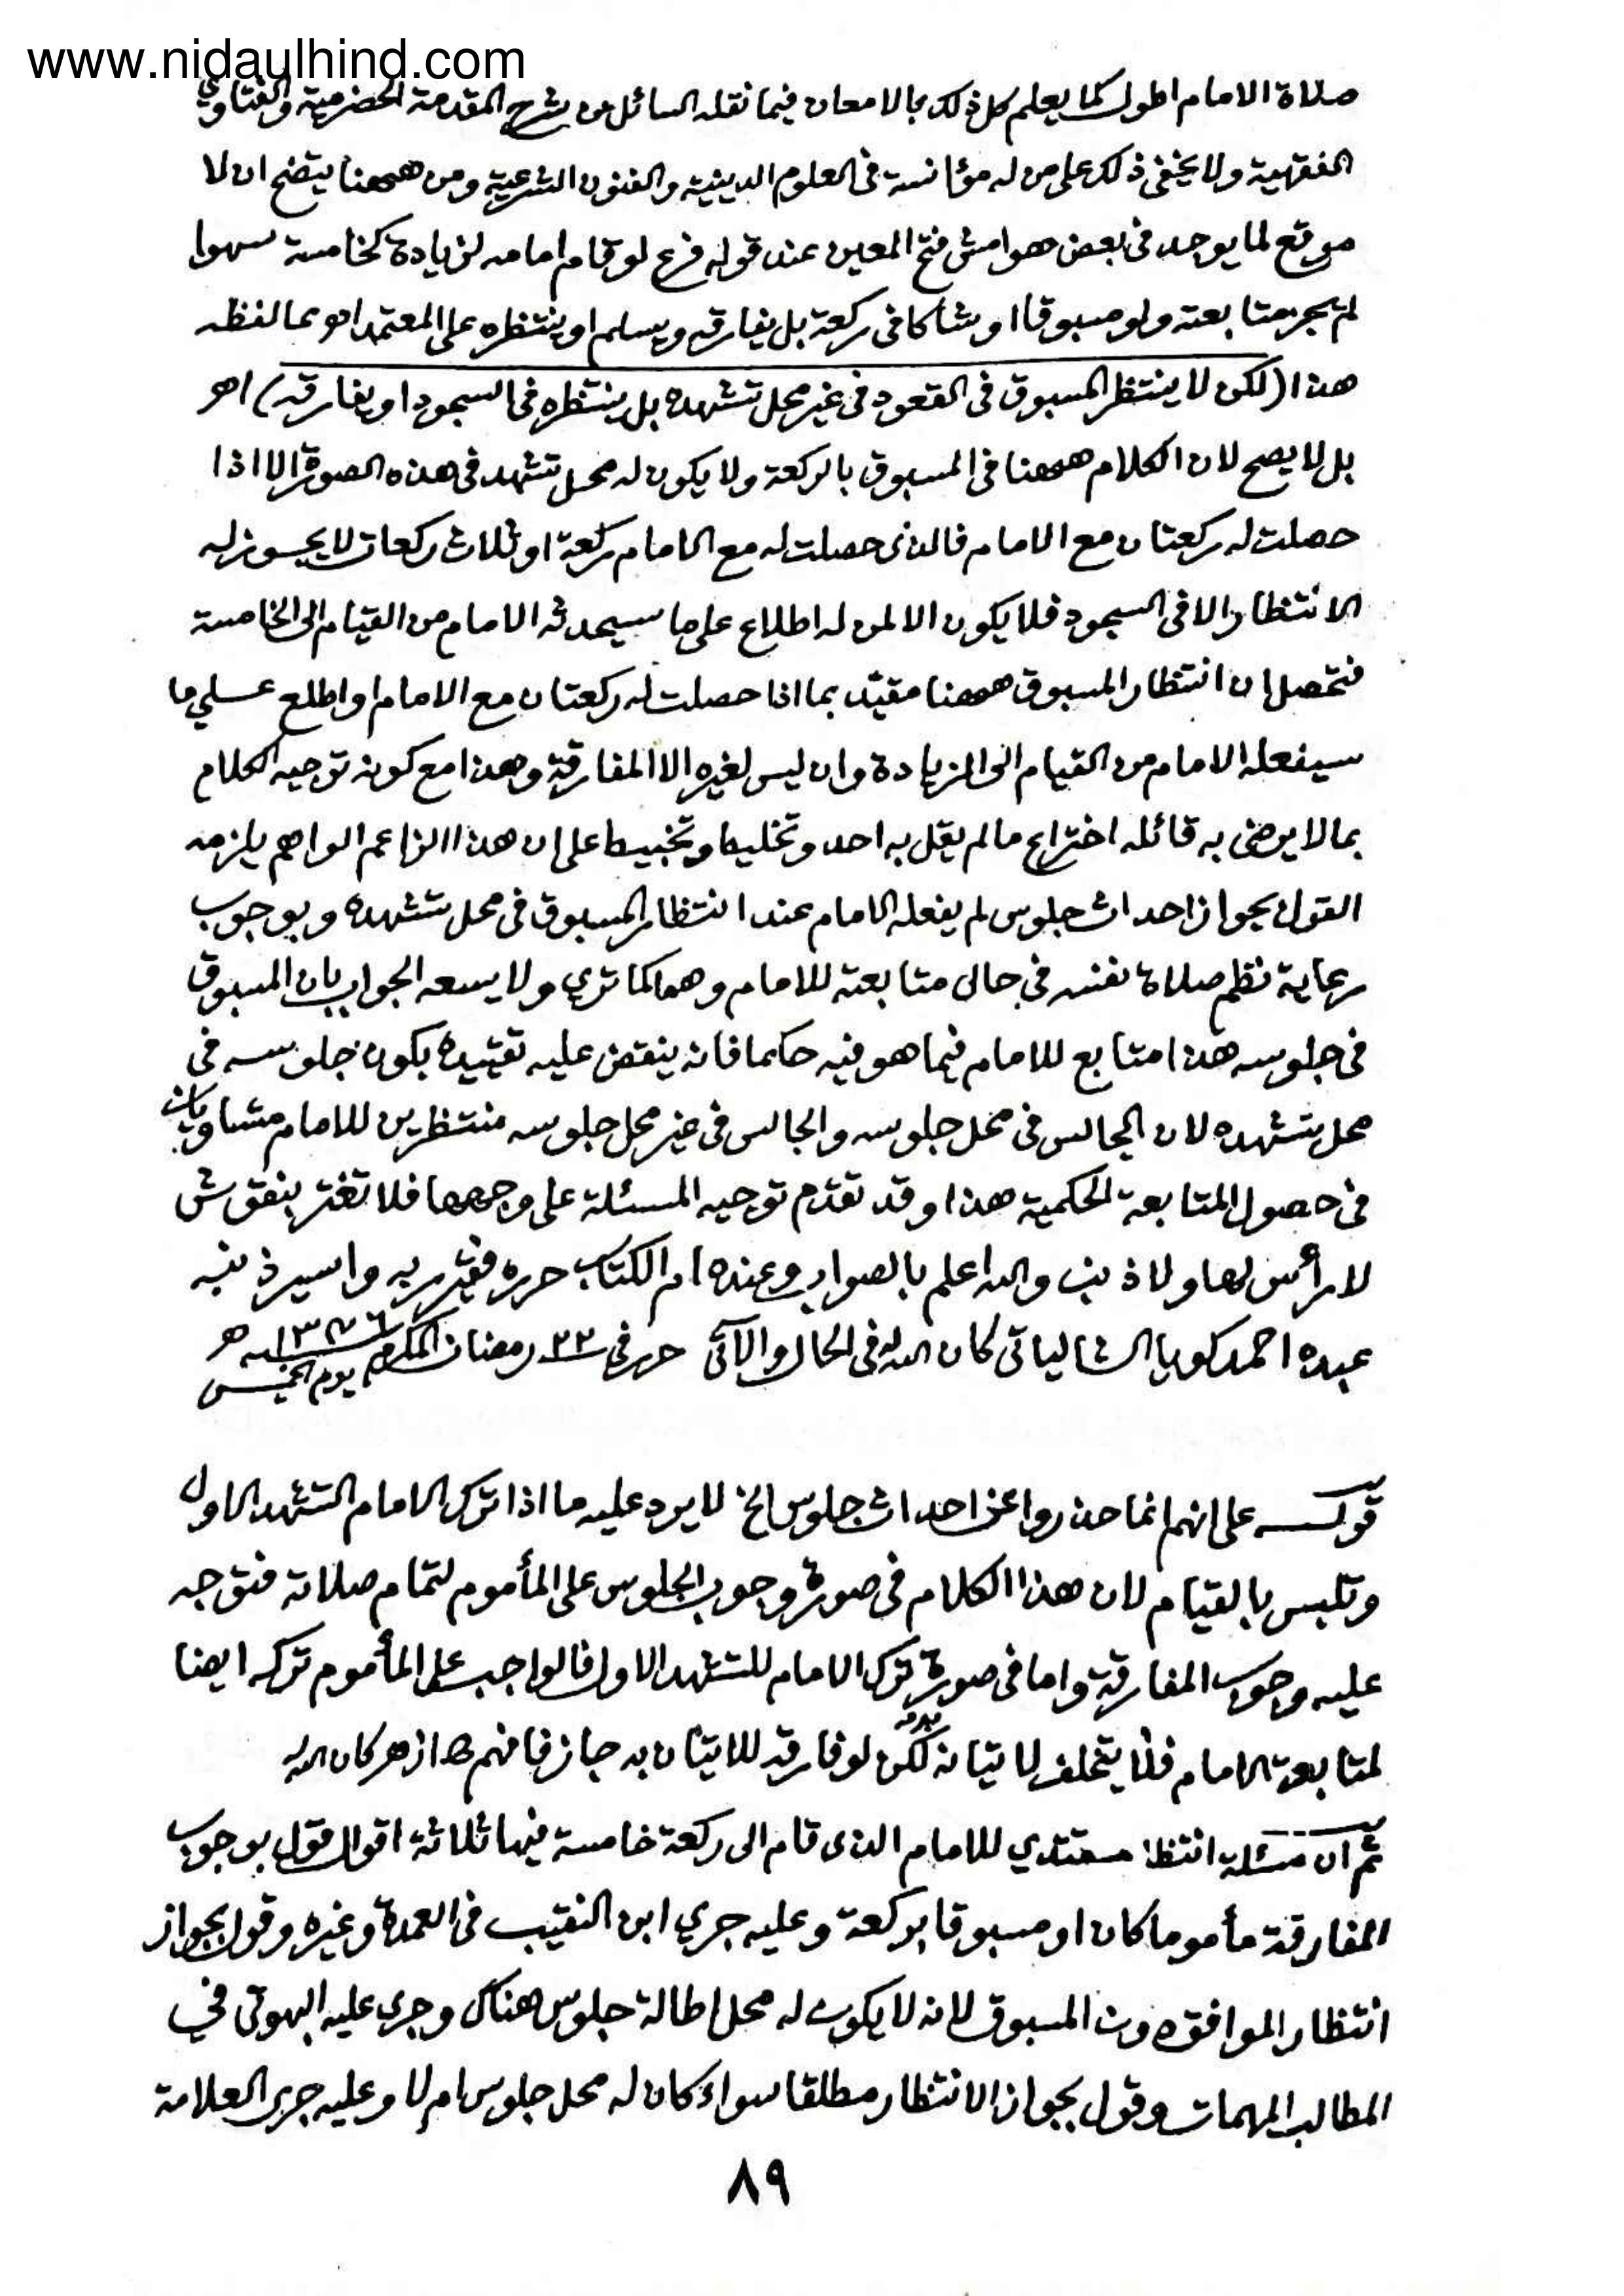 www.nidaulhind.com
صلاة الامام اطول كما يعلم كل ذلك بالامعان فيما نقله السائل من شرح المقدمة الحضرمية والفتاوي
الفقهية ولا يخفى ذلك على من له مؤانسة فى العلوم الدينية والفنون الشرعية ومن ههنا يتضح ان لا
موقع لما يوجد فى بعض هوامش فتح المعين عند قوله فرع لو قام امامه لزيادة كخامسة سهوا
لم تجز متابعته ولو مسبوقا او شاكا فى ركعة بل يفارقه ويسلم او ينتظره على المعتمد اھ مما لفظه
هذا (لكن لا ينتظر المسبوق فى القعود فى غير محل تشهده بل ينتظره فى السجود او يفارقه) اھ
بل لا يصح لان الكلام ههنا فى المسبوق بالركعة ولا يكون له محل تشهد فى هذه الصورة الا اذا
حصلت له ركعتان مع الامام فالذى حصلت له مع الامام ركعة او ثلاث ركعات لا يجوز له
الانتظار الا فى السجود فلا يكون الا لمن له اطلاع على ما سيحدثه الامام من القيام الى الخامسة
فتحصل ان انتظار المسبوق ههنا مقيّد بما اذا حصلت له ركعتان مع الامام واطلع على ما
سيفعله الامام من القيام الى الزيادة وان ليس لغيره الا المفارقة وهذا مع كونه توجيه الكلام
بما لا يرضى به قائله اختراع ما لم يقل به احد وتخليط وتخبيط على ان هذا الزاعم الواهم يلزمه
القول بجواز احداث جلوس لم يفعله الامام عند انتظار المسبوق فى محل تشهده وبوجوب
رعاية نظم صلاة نفسه في حال متابعته للامام وهما كما تري ولا يسعه الجواب بان المسبوق
فى جلوسه هذا متابع للامام فيما هو فيه حكما فانه ينقض عليه تقييده بكون جلوسه فى
محل تشهده لان الجالس فى محل جلوسه والجالس فى غير محل جلوسه منتظرين للامام متساويان
فى حصول المتابعة الحكمية هذا وقد تقدم توجيه المسئلة على وجهها فلا تغتر بنقوش
لا رأس لها ولا ذنب والله اعلم بالصواب وعنده ام الكتاب حرره فقير ربه واسير ذنبه
عبده احمد كويا الشالياتى كان الله له فى الحال والآتى حرر فى ٢٣ رمضان المكرم ١٣٧٦ـه هـ
يوم الخميس
قولـــه على انهم انما حذروا عن احداث جلوس الخ لا يرد عليه ما اذا ترك الامام التشهد الاول
وتلبس بالقيام لان هذا الكلام فى صورة وجوب الجلوس على المأموم لتمام صلاته فتوجه
عليه وجوب المفارقة واما فى صورة ترك الامام للتشهد الاول فالواجب على المأموم تركه ايضا
لمتابعة الامام فلا يتخلف لاتيانه لكن لو فارقه للاتيان به جاز فافهم كان الله
ثم ان مسئلة انتظار مقتدي للامام الذى قام الى ركعة خامسة فيها ثلاثة اقوال قول بوجوب
المفارقة مأموما كان او مسبوقا بركعة وعليه جري ابن النقيب فى العمدة وغيره وقول بجواز
انتظار الموافق دون المسبوق لانه لا يكون له محل اطالة جلوس هناك وجرى عليه البهوتى في
المطالب المهمات وقول بجواز الانتظار مطلقا سواء كان له محل جلوس ام لا وعليه جرى العلامة
٨٩